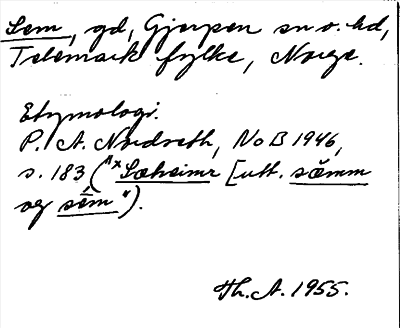 Sem, gd, Gjerpen sn o. hd,
Telemark fylke, Norge.
Etymologi.
P. A. Nordseth, NoB 1946,
s. 183 ("ˣSæheimr [utt. sæ̆mm
og sém").
Th. A. 1955.